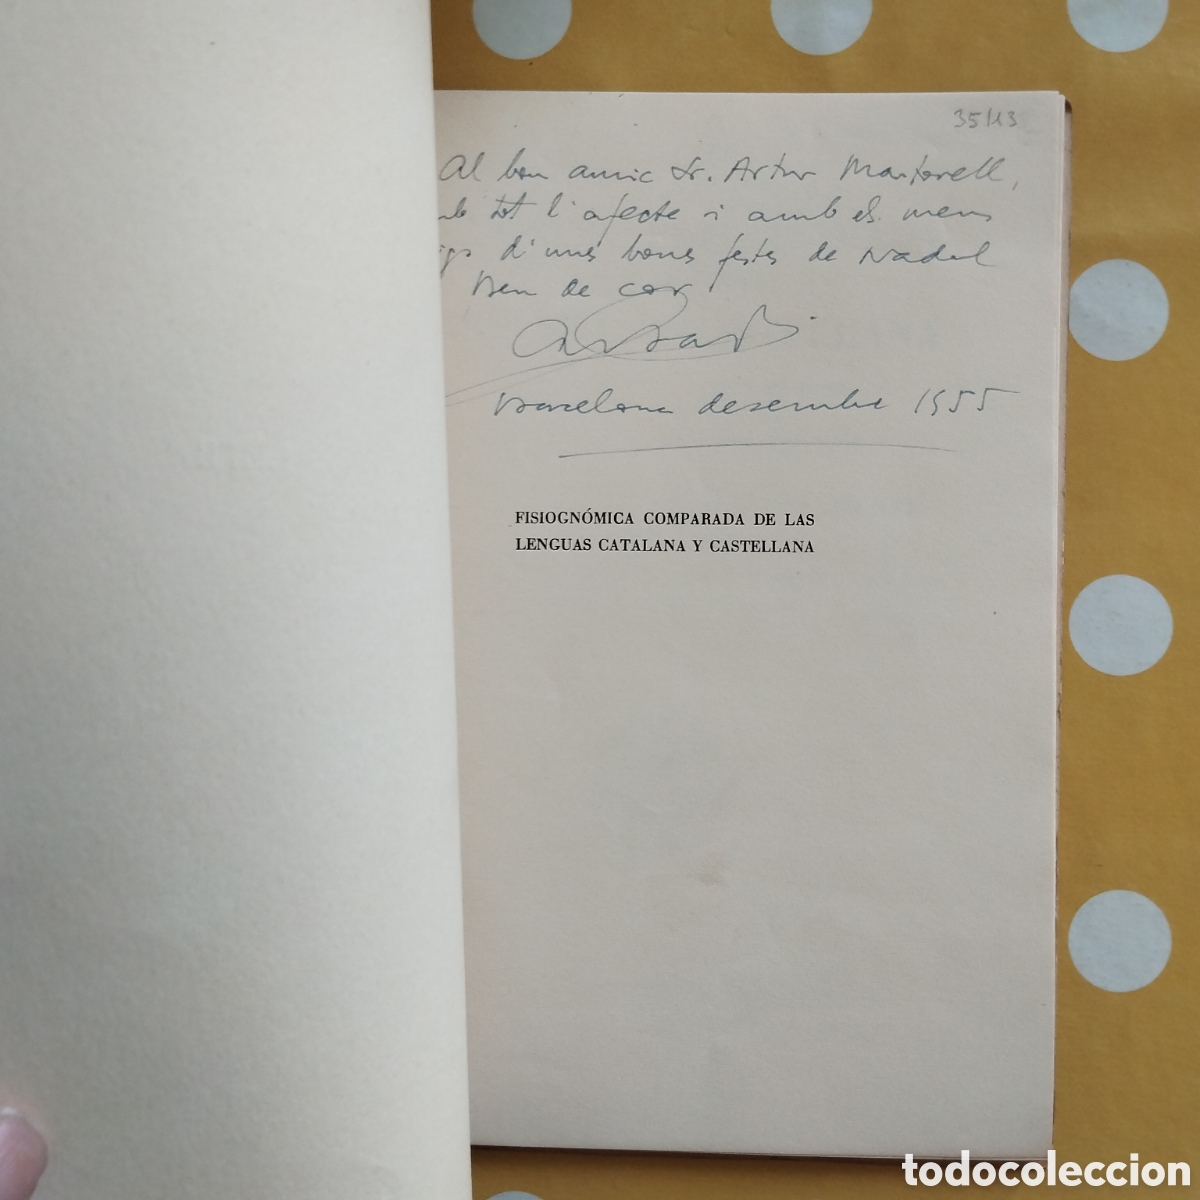 35/13
Al bon amic Sr. Artur Martorell,
tot l'afecte i amb els meus
d'unes bones festes de Nadal
Ben de cor
Barcelona desembre 1955
FISIOGNÓMICA COMPARADA DE LAS
LENGUAS CATALANA Y CASTELLANA
todocoleccion